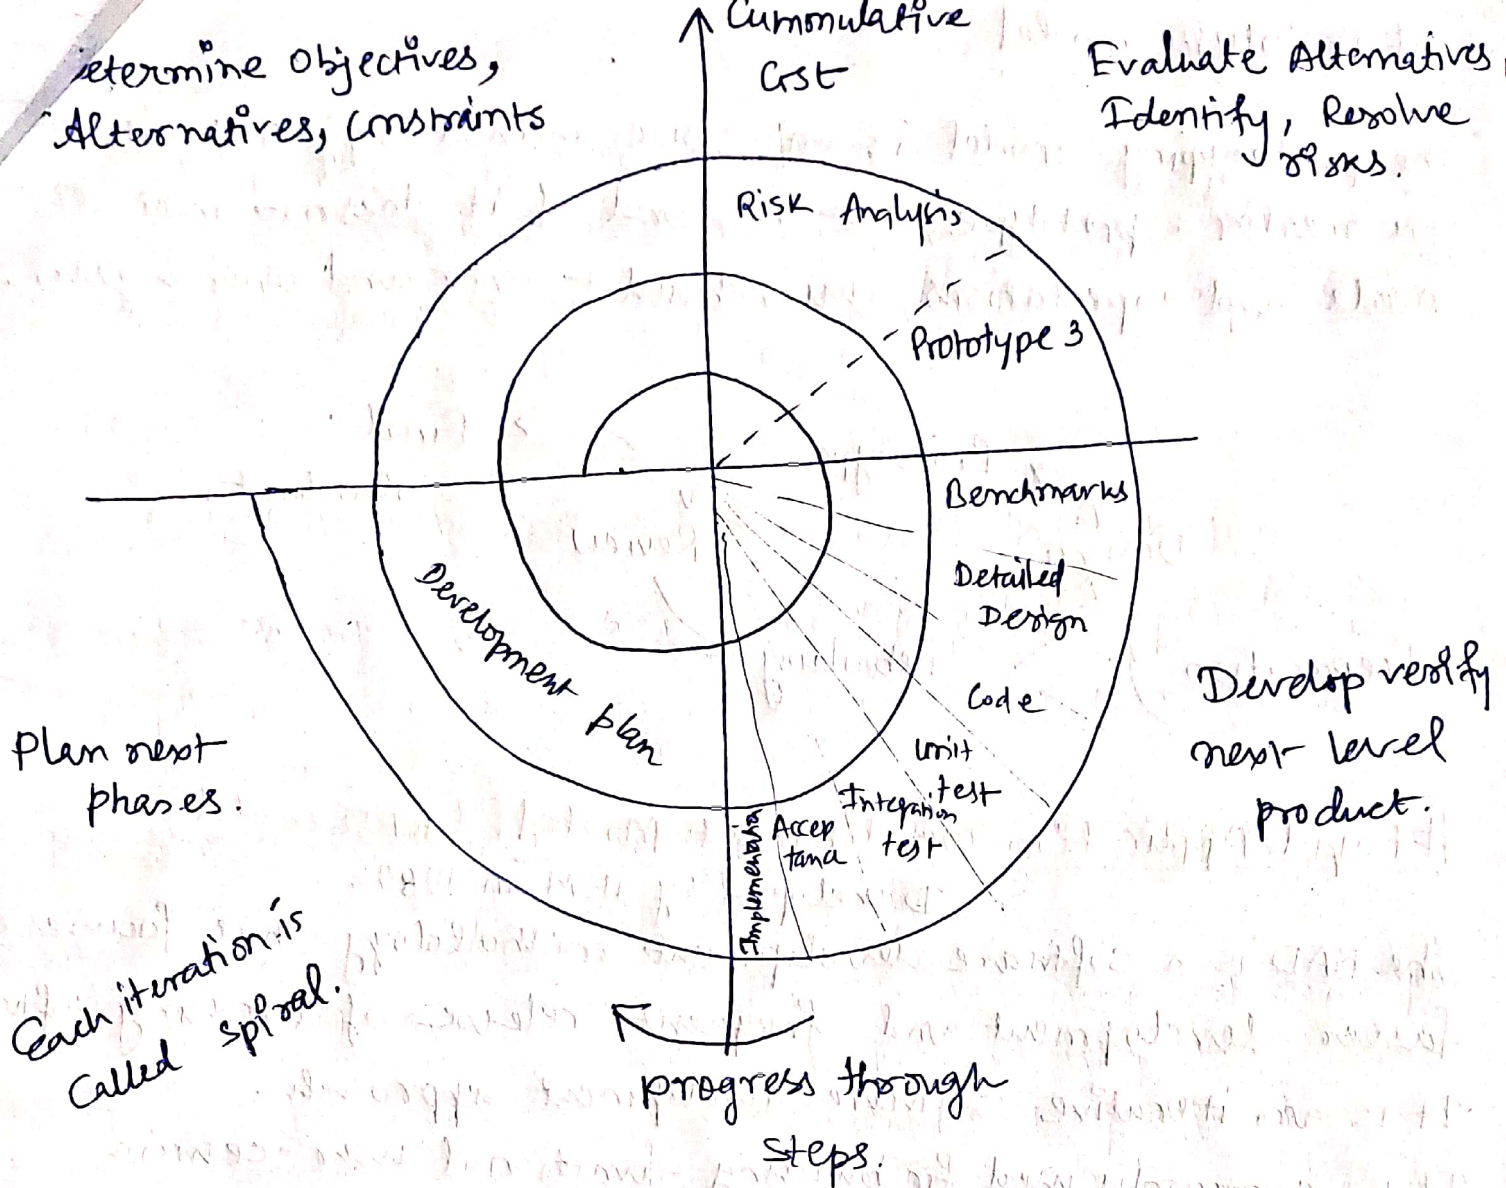 Cummulative
Cost
Determine Objectives,
Alternatives, Constraints
Evaluate Alternatives,
Identify, Resolve
risks.
Risk Analysis
Prototype 3
Benchmarks
Detailed
Design
Code
Unit
test
Integration
test
Accep
tance
Implementation
Development plan
Develop verify
next level
product.
Plan next
phases.
Each iteration is
called spiral.
progress through
steps.